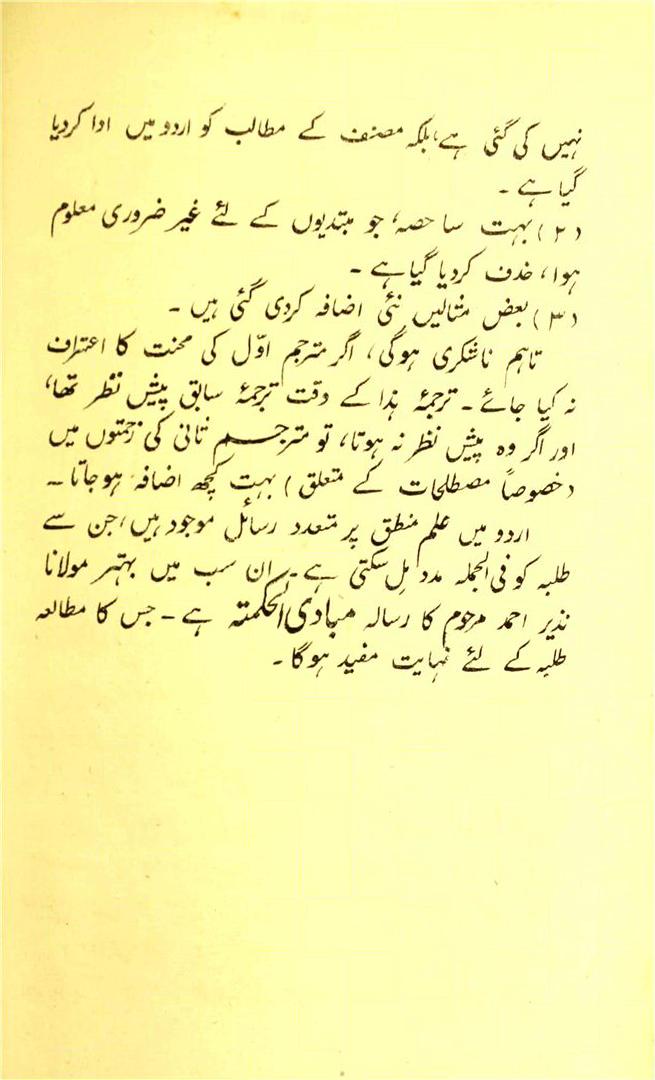 نہیں کی گئی ہے، بلکہ مصنف کے مطالب کو اردو میں ادا کردیا
گیا ہے۔
(۲) بہت سا حصہ، جو مبتدیوں کے لئے غیر ضروری معلوم
ہوا، خذف کردیا گیا ہے۔
(۳) بعض مثالیں نئی اضافہ کردی گئی ہیں۔
تاہم ناشکری ہوگی، اگر مترجم اوّل کی محنت کا اعتراف
نہ کیا جائے۔ ترجمۂ ہذا کے وقت ترجمۂ سابق پیش نظر تھا،
اور اگر وہ پیش نظر نہ ہوتا، تو مترجم ثانی کی زحمتوں میں
(خصوصاً مصطلحات کے متعلق) بہت کچھ اضافہ ہوجاتا۔
اردو میں علم منطق پر متعدد رسائل موجود ہیں، جن سے
طلبہ کو فی الجملہ مدد مِل سکتی ہے۔ ان سب میں بہتر مولانا
نذیر احمد مرحوم کا رسالہ مبادی الحکمتہ ہے۔ جس کا مطالعہ
طلبہ کے لئے نہایت مفید ہوگا۔